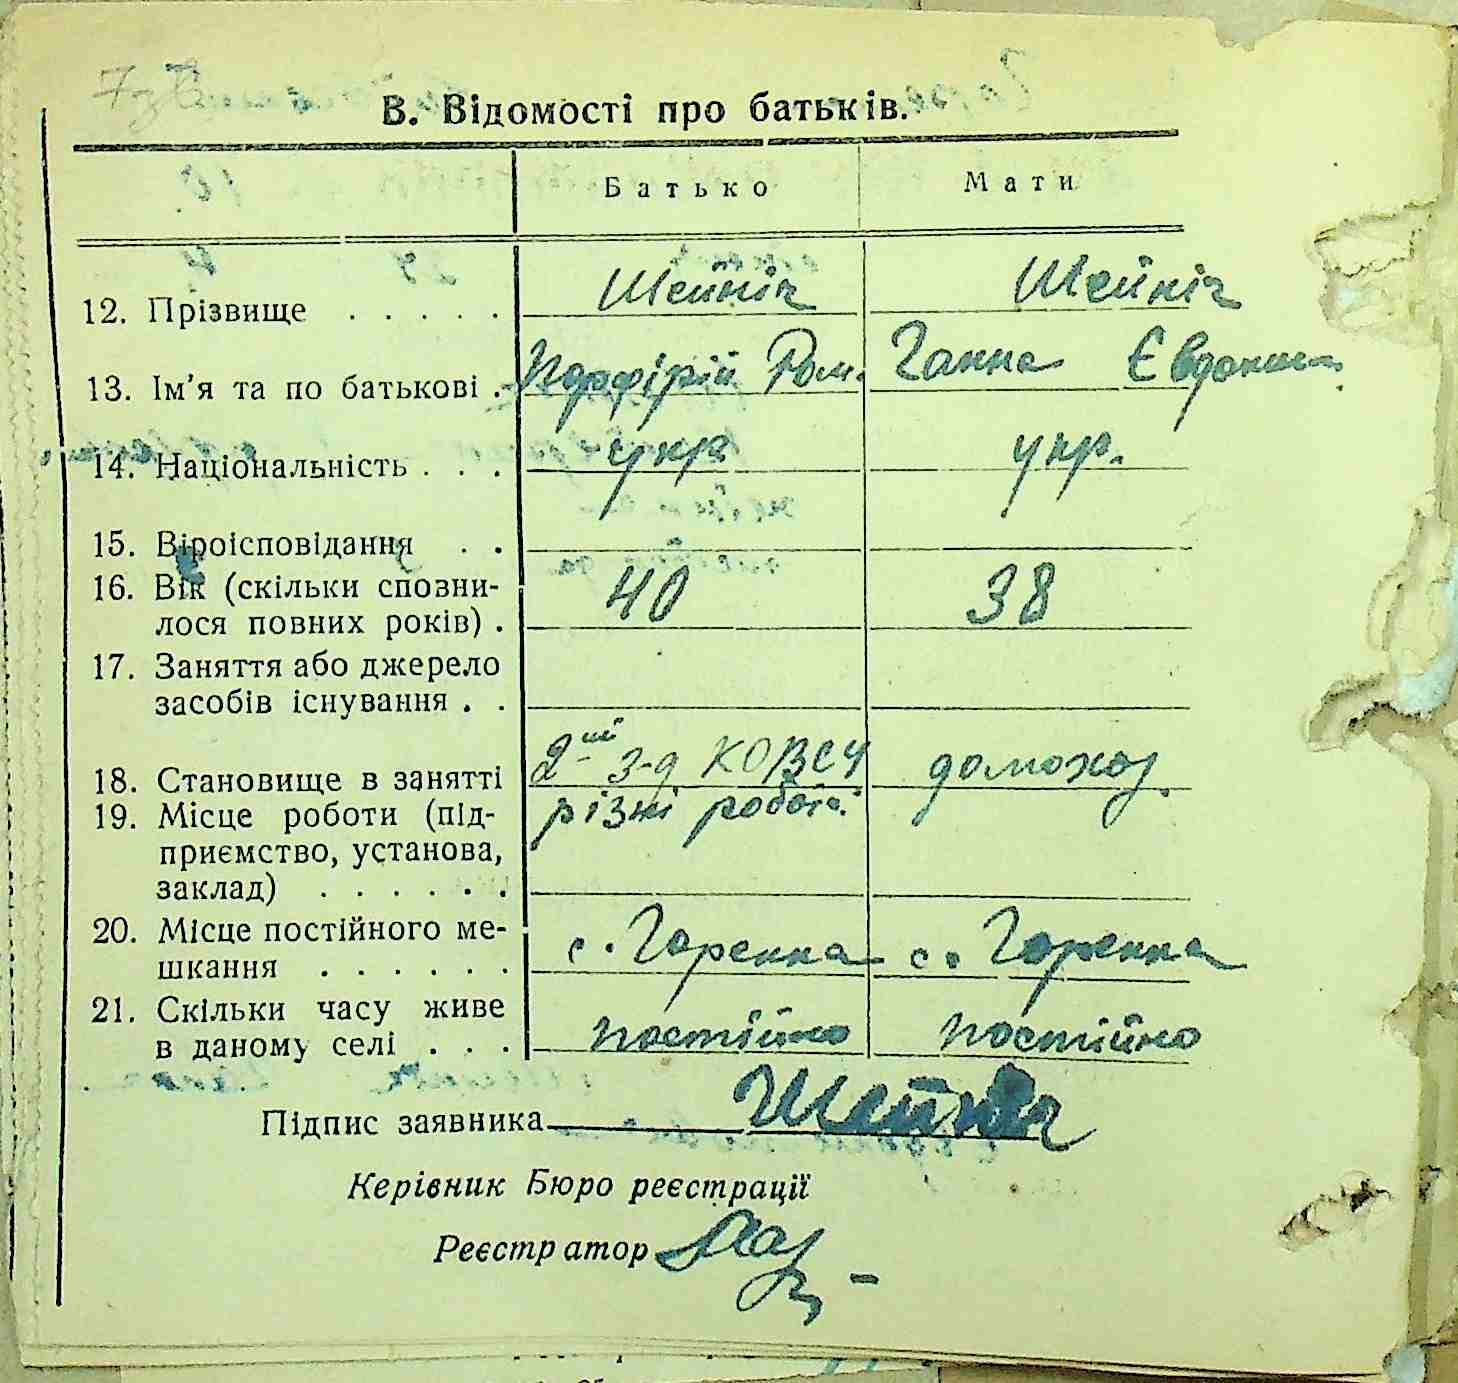 В. Відомості про батьків.
Батько Мати
12. Прізвище . . . . . Шейніч Шейніч
13. Ім'я та по батькові . Порфірій Ром. Ганна Євдоким.
14. Національність . . . укр укр.
15. Віроісповідання . .
16. Вік (скільки сповни-
лося повних років) . 40 38
17. Заняття або джерело
засобів існування . .
18. Становище в занятті 2ий з-д домохоз.
19. Місце роботи (під- різні роботи
приємство, установа,
заклад) . . . . . .
20. Місце постійного ме-
шкання . . . . . . с. Горенка с. Горенка
21. Скільки часу живе
в даному селі . . . постійно постійно
Підпис заявника Шейніч
Керівник Бюро реєстрації
Реєстратор